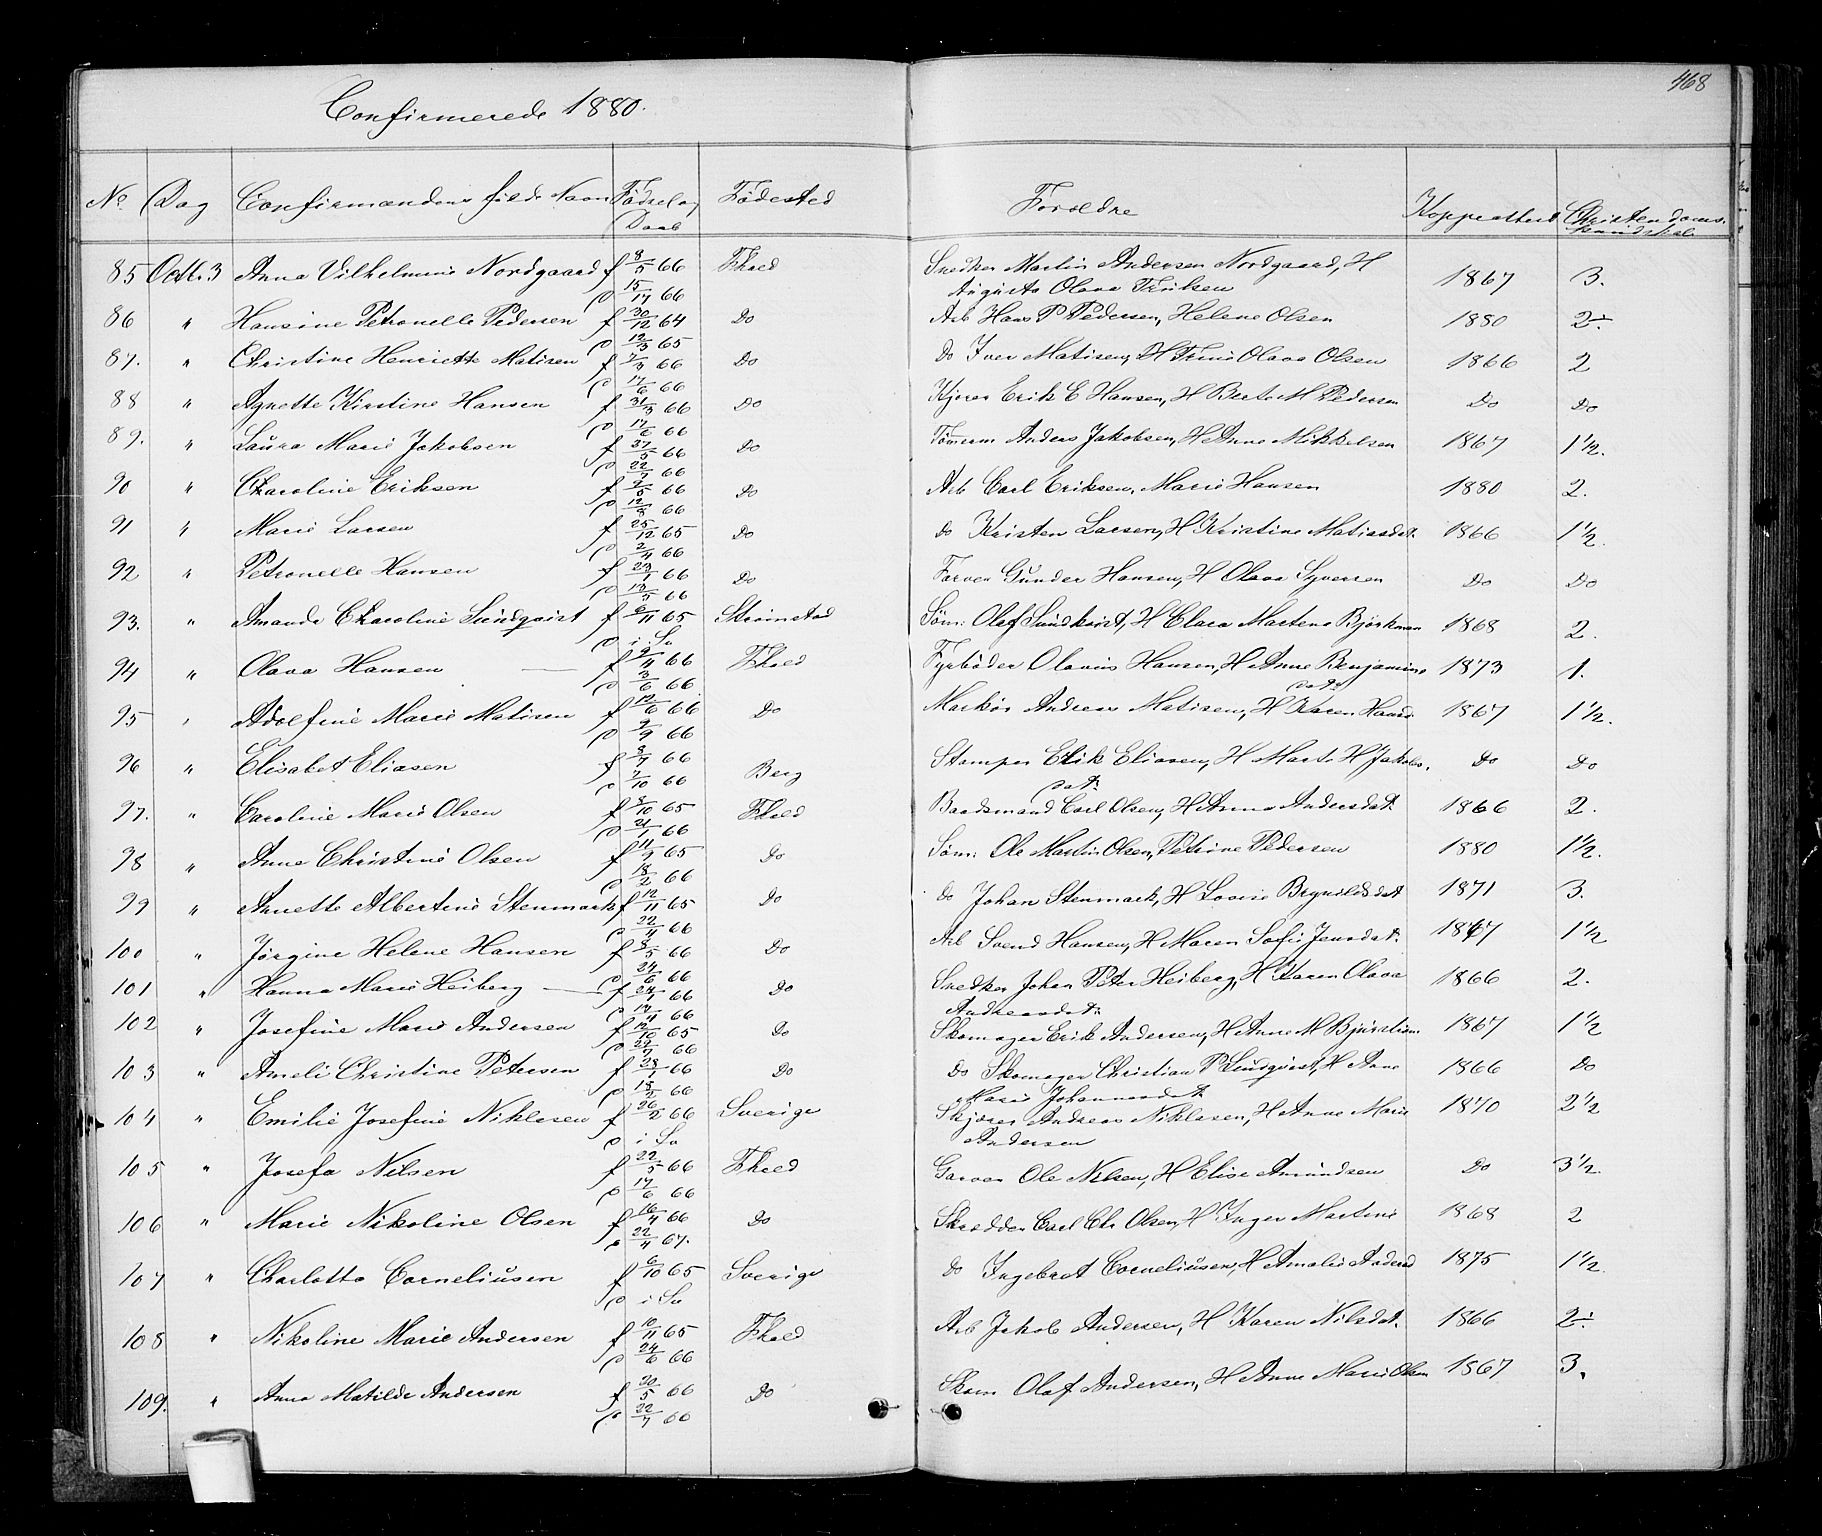 468
Confirmerede 1880.
No Dag Confirmandens fulde Navn Fødsel og Daab Fødested Forældre Koppeattest Christendoms-kundskab
85 Octb. 3 Anna Vilhelmine Nordgaard f 8/5 66 Fhald Snedker Martin Andersen Nordgaard, H 1867 3.
D 15/ 66 Augusta Olava Eriksen
86 " Hansine Petronelle Pedersen f 30/12 64 Do Arb Hans P Pedersen, Helene Olsen 1880 2÷
D 12/3 65
87. " Christine Henriette Matisen f 7/3 66 Do Do Iver Matisen, H Olava Olsen 1866 2
D 17/6 66
88 " Agnette Kirstine Hansen f 31/3 66 Do Kjører Erik E Hansen, H Berte M Pedersen Do Do
D 17/6 66
89. " Laura Marie Jakobsen f 27/5 66 Do Tømerm Anders Jakobsen, H Anne Mikkelsen 1867 1½.
D 22/7 66
90 " Charoline Eriksen f 66 Do Arb Carl Eriksen, Marie Hansen 1880 2.
D 12/8 66
91 " Marie Larsen f 25/12 65 Do Do Kristen Larsen, H Kristine Matiasdat. 1866 1½.
D 2/4 66
92 " Petronelle Hansen f 23/1 66 Do Farver Gunder Hansen, H Olava Syversen Do Do
D 13/5 66
93. " Amanda Charoline Sundqvist f 6/11 65 Strømstad Søm: Olaf Sundkvist, H Clara Martena Bjørkman 1868 2.
D i Sv
94 " Olava Hansen f 9/4 66 Fhald Fyrbøder Olavus Hansen, H Anne Benjamins 1873 1.
D 3/6 66 dat.
95 " Adolfine Marie Matisen f 12/6 66 Do Andreas Matisen, H Karen Hansd. 1867 1½.
D 9/9 66
96 " Elisabet Eliasen f 8/7 66 Berg Stamper Erik Eliasen, H Marte H Jakobs. Do Do
D 7/10 66 dat.
97. " Caroline Marie Olsen f 8/10 65 Fhald Baadsmand Carl Olsen, H Anna Andersdat. 1866 2.
D 21/1 66
98 " Anne Christine Olsen f 11/9 65 Do Søm: Ole Martin Olsen, Petrine Pedersen 1880 1½.
D 18/2 66
99 " Anette Albertine Stenmark f 12/11 65 Do Do Johan Stenmark, H Lovise Brynildsdat 1871 3.
D 22/4 66
100 " Jørgine Helene Hansen f 8/5 66 Do Arb Svend Hansen, H Maren Sofie Jensdat. 1867 1½
D 24/6 66
101 " Hanna Marie Heiberg f 24/1 66 Do Snedker Johan Peter Heiberg, H Karen Olava 1866 2.
D 66 Andreasdat.
102 " Josefine Marie Andersen f 65 Do Skomager Erik Andersen, H Anne M 1867 1½
D 22/7 66
103 " Ameli Christine Petersen f 28/1 66 Do Do Skomager Christian P Sundqvist, H Anne 1866 Do
D 18/2 66 Marie Johannesdat.
104 " Emilie Josefine Niklesen f 26/2 66 Sverige Andreas Niklasen, H Anne Marie 1870 2½
D i Sv Andersen
105 " Josefa Nilsen f 22/5 66 Fhald Garver Ole Nilsen, H Elise Amundsen Do 3½.
D 17/6 66
106 " Marie Nikoline Olsen f 16/4 66 Do Skrædder Carl Chr Olsen, H Inger Martine 1868 2
D 22/4 67.
107 " Charlotte Corneliusen f 6/10 65 Sverige Do Ingebret Corneliusen, H Amalie Andersd 1875 1½.
D i Sv
108 " Nikoline Marie Andersen f 10/11 65 Fhald Arb Jakob Andersen, H Karen Nilsdat. 1866 2÷
D 24/6 66
109. " Anna Matilde Andersen f 20/5 66 Do Skom Olaf Andersen, H Anne Marie Olsen 1867 3.
D 22/7 66